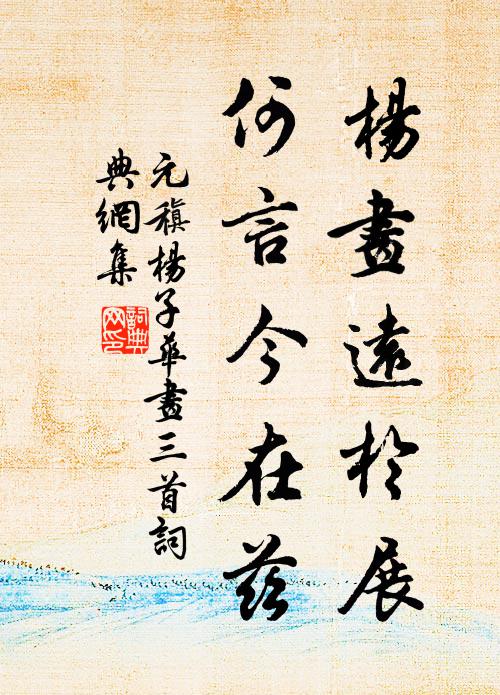 楊畫遠於展
何言今在茲
元稹楊子華畫三首詞
典網集
詞典
网印